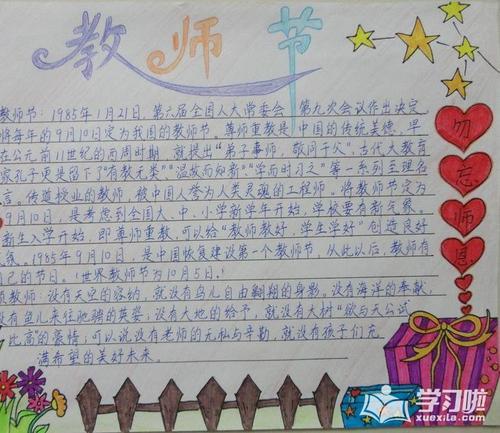 教师节
教师节：1985年1月21日，第六届全国人大常委会 第九次会议作出决定，
将每年的9月10日定为我国的教师节。尊师重教是中国的传统美德，早
在公元前11世纪的西周时期，就提出"弟子事师，敬同于父"。古代大教育
家孔子更是留下了"有教无类""温故而知新""学而时习之"等一系列至理名
言。传道授业的教师，被中国人誉为人类灵魂的工程师。将教师节定为
9月10日，是考虑到全国大、中、小学新学年开始，学校要有新气象。
新生入学开始，即尊师重教，可以给"教师教好，学生学好"创造良好
气氛。1985年9月10日，是中国恢复建设第一个教师节，从此以后，教师有
自己的节日。（世界教师节为10月5日。）
教师：没有天空的容纳，就没有鸟儿自由翱翔的身影。没有海洋的奉献，
没有鱼儿来往驰骋的英姿；没有大地的给予，就没有大树"欲与天公试
比高"的豪情；可以说没有老师的无私与辛勤，就没有孩子们充
满希望的美好未来。
勿
忘
师
恩
学习啦
xuexila.com